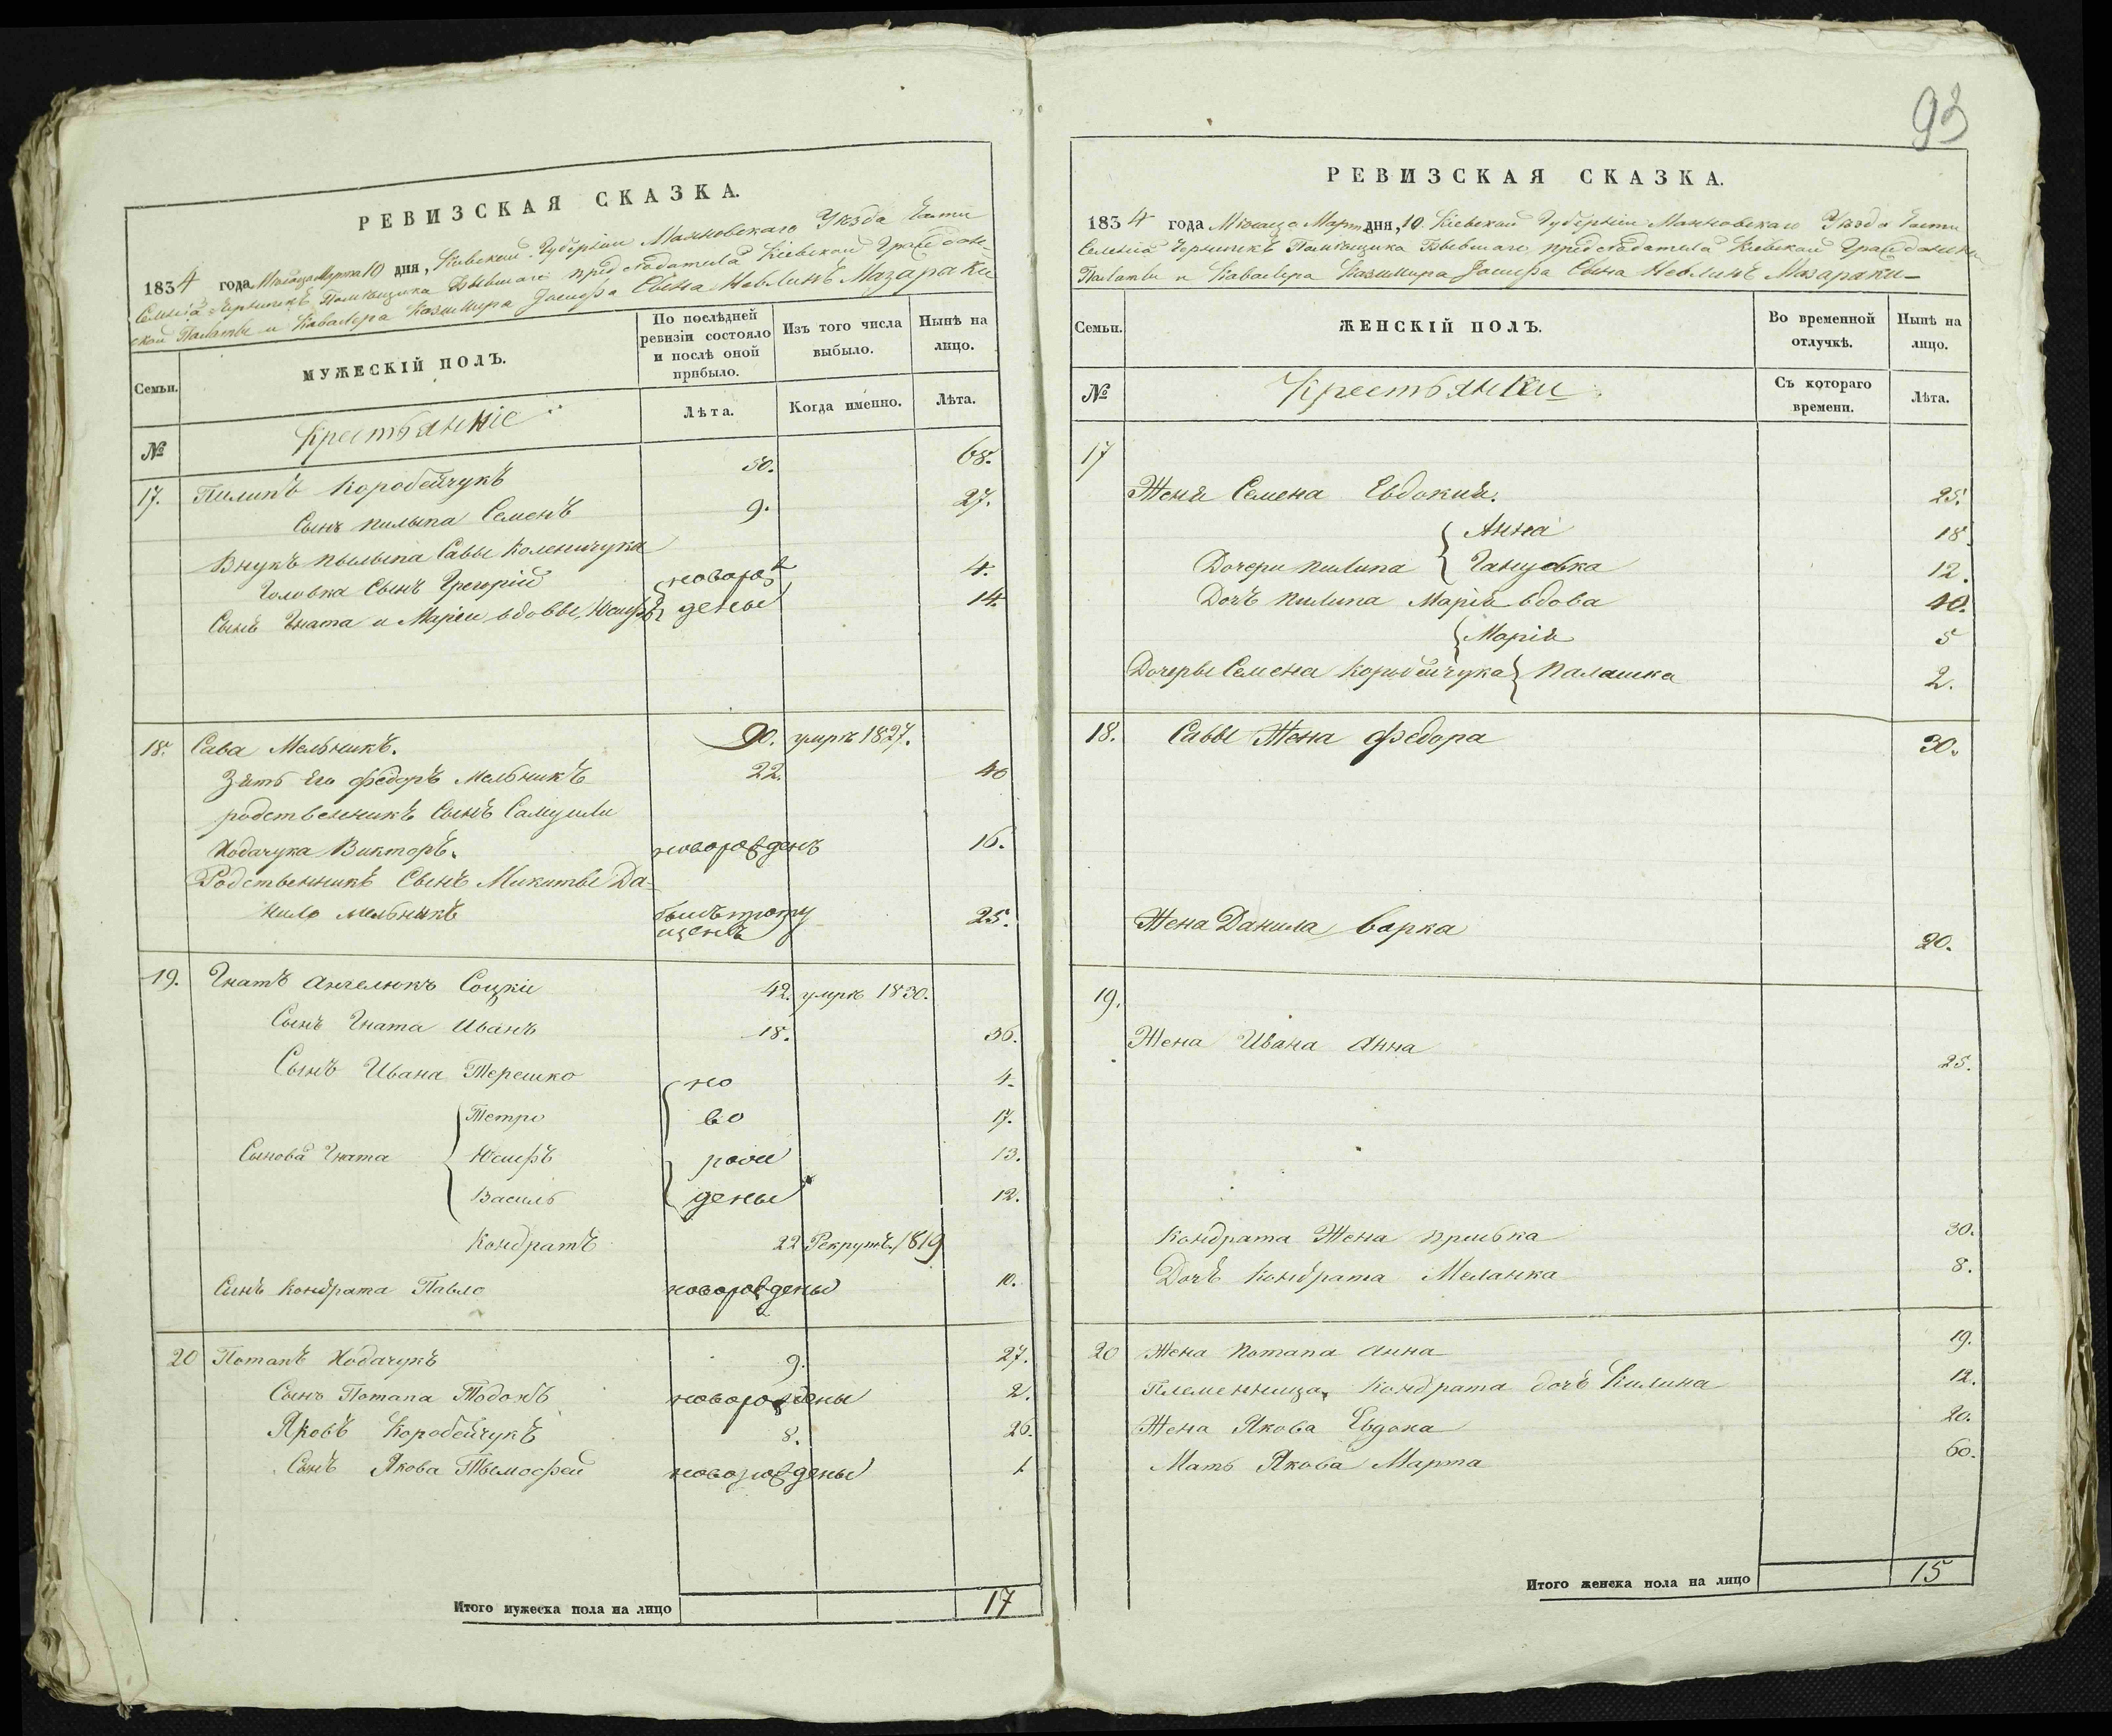 93
РЕВИЗСКАЯ СКАЗКА.
1834 года Месяца Марта 10 дня, Кіевской Губерніи Махновскаго Уезда Части
Селенія Помѣщика Бывшаго председателя Кіевской Граждан-
ской Палаты и Кавалера Казимира Іосифа Сына Мазараки
Семьи.
МУЖЕСКІЙ ПОЛЪ.
По послѣдней ревизіи состояло и послѣ оной прибыло.
Изъ того числа выбыло.
Нынѣ на лицо.
№
Крестьяніе
Лѣта.
Когда именно.
Лѣта.
17. Пилипъ Коробейчукъ 50. 68.
Сынъ пилыпа Семенъ 9. 27.
Внукъ пылыпа Саввы
Головка Сынъ Грегорій новорож 4.
Сынъ Гната и Маріи вдовы, Юсифъ дены 14.
18. Сава Мельникъ. 90. умре 1827.
Зять Его Федоръ Мельникъ 22. 40
родственникъ Сынъ Самуили
Ходачука Викторъ. новорожденъ 16.
Родственникъ Сынъ Микиты Да-
нило Мельникъ 25.
19. Гнатъ Ангелюкъ Соцкіи 42. умре 1830.
Сынъ Гната Иванъ 18. 36.
Сынъ Ивана Терешко но 4.
Петро во 17.
Сынова Гната Юсифъ рож 13.
Василь дены 12.
Кондратъ 22 Рекрутъ 1819
Синъ Кондрата Павло новорождены 10.
20 Потапъ Ходачукъ 9. 27.
Сынъ Потапа Тодокъ новорождены 2.
Яковъ Коробейчукъ 8. 26.
Синъ Якова Тымофей новорождены 1
Итого мужеска пола на лицо 17
РЕВИЗСКАЯ СКАЗКА.
1834 года Месяца Марта дня, 10 Кіевской Губерніи Махновскаго Уезда Части
Селенія Помѣщика Бывшаго председателя Кіевской Гражданской
Палаты и Кавалера Казимира Іосифа Сына Мазараки
Семьи.
ЖЕНСКІЙ ПОЛЪ.
Во временной отлучкѣ.
Нынѣ на лицо.
№
Крестьянки
Съ котораго времени.
Лѣта.
17
Жена Семена Евдокия. 25.
Анна 18.
Дочери пилипа 12.
Дочъ пилипа Марія вдова 40.
Марія 5
Дочеры Семена Коробейчука Палашка 2.
18. Саввы Жена Федора 30.
Жена Данила Варка 20.
19.
Жена Ивана Анна 25.
Кондрата Жена 30.
Дочъ Кондрата Меланка 8.
20 Жена Потапа Анна 19.
Племенница, Кондрата дочъ Килина 12.
Жена Якова Евдока 20.
Мать Якова Марта 60.
Итого женска пола на лицо 15